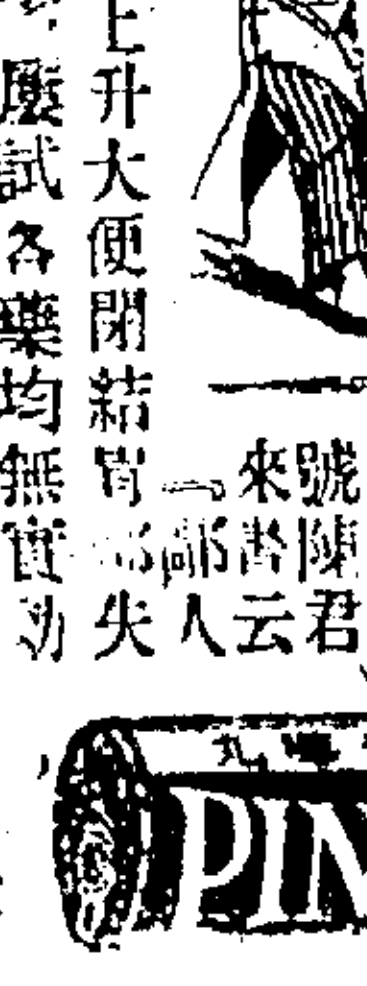 號陳君
來書云
「鄙人
上升大便閉結胃部失
壓試各藥均無實功
丸
PIN